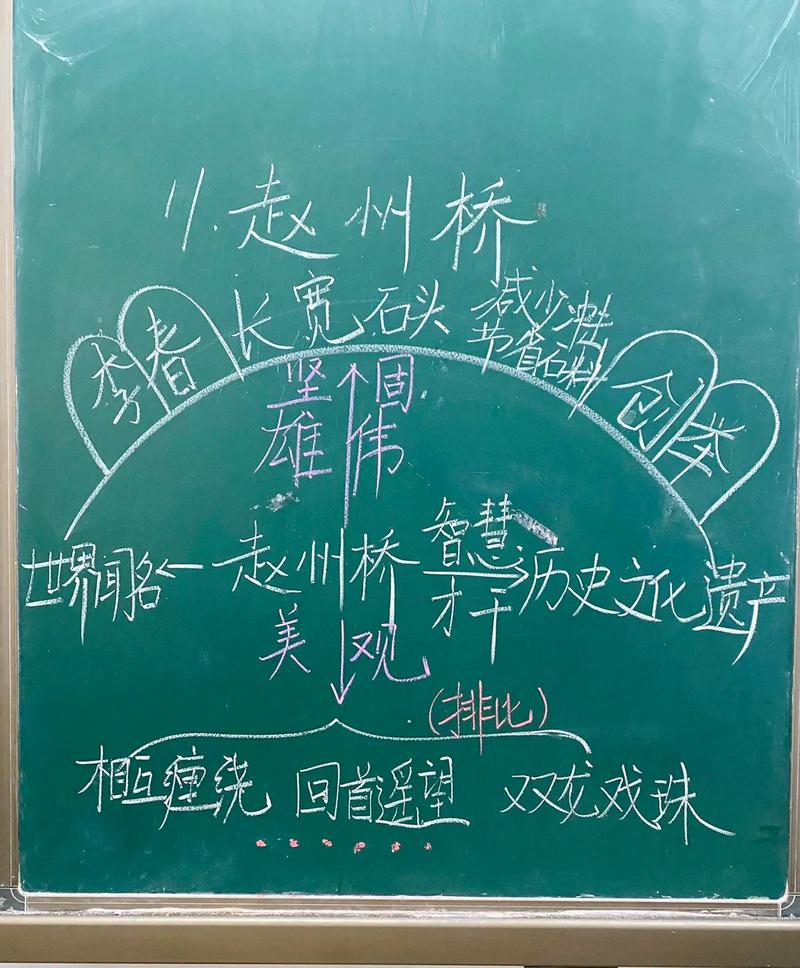 11.赵州桥
李春 长宽石头 减少冲击 创举
节省石料
坚固
雄伟
世界闻名←赵州桥 智慧 才干→历史文化遗产
美观
(排比)
相互缠绕 回首遥望 双龙戏珠